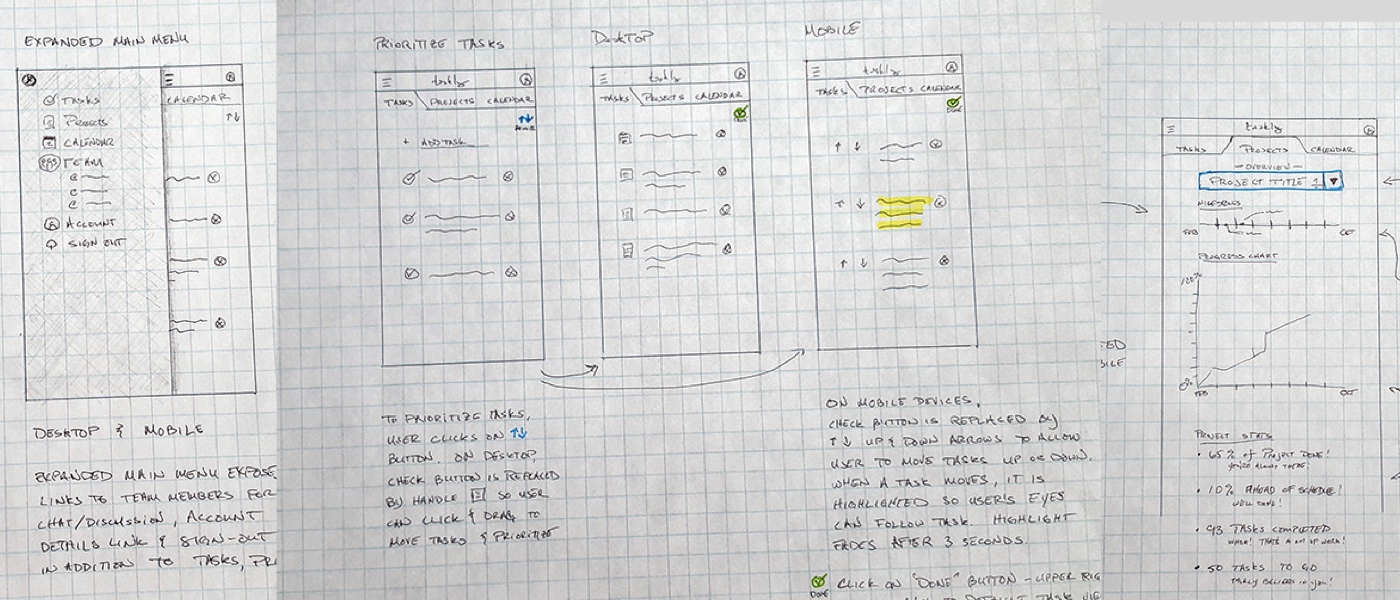 EXPANDED MAIN MENU
TASKS
PROJECTS
CALENDAR
TEAM
ACCOUNT
SIGN OUT
CALENDAR
↑↓
DESKTOP & MOBILE
EXPANDED MAIN MENU EXPOSE
LINKS TO TEAM MEMBERS FOR
CHAT/DISCUSSION, ACCOUNT
DETAILS LINK & SIGN-OUT
IN ADDITION TO TASKS, PR
PRIORITIZE TASKS
taskly
TASKS PROJECTS CALENDAR
↑↓
+ ADD TASK
TO PRIORITIZE TASKS,
USER CLICKS ON ↑↓
BUTTON. ON DESKTOP,
CHECK BUTTON IS REPLACED
BY HANDLE SO USER
CAN CLICK & DRAG TO
MOVE TASKS & PRIORITIZE
DESKTOP
taskly
TASKS PROJECTS CALENDAR
MOBILE
taskly
TASKS PROJECTS CALENDAR
DONE
↑ ↓
↑ ↓
↑ ↓
ON MOBILE DEVICES,
CHECK BUTTON IS REPLACED BY
↑ ↓ UP & DOWN ARROWS TO ALLOW
USER TO MOVE TASKS UP OR DOWN.
WHEN A TASK MOVES, IT IS
HIGHLIGHTED SO USER'S EYES
CAN FOLLOW TASK. HIGHLIGHT
FADES AFTER 3 SECONDS.
DONE
CLICK ON "DONE" BUTTON - UPPER RIG
TED
BILE
taskly
TASKS PROJECTS CALENDAR
- OVERVIEW -
PROJECT TITLE 1 ▼
MILESTONES
FEB OCT
PROGRESS CHART
100%
0%
FEB OCT
PROJECT STATS
• 65% OF PROJECT DONE!
YOU'RE ALMOST THERE!
• 10% AHEAD OF SCHEDULE!
WELL DONE!
• 93 TASKS COMPLETED
WHOA! THAT'S A LOT OF WORK!
• 50 TASKS TO GO
TASKLY BELIEVES IN YOU!